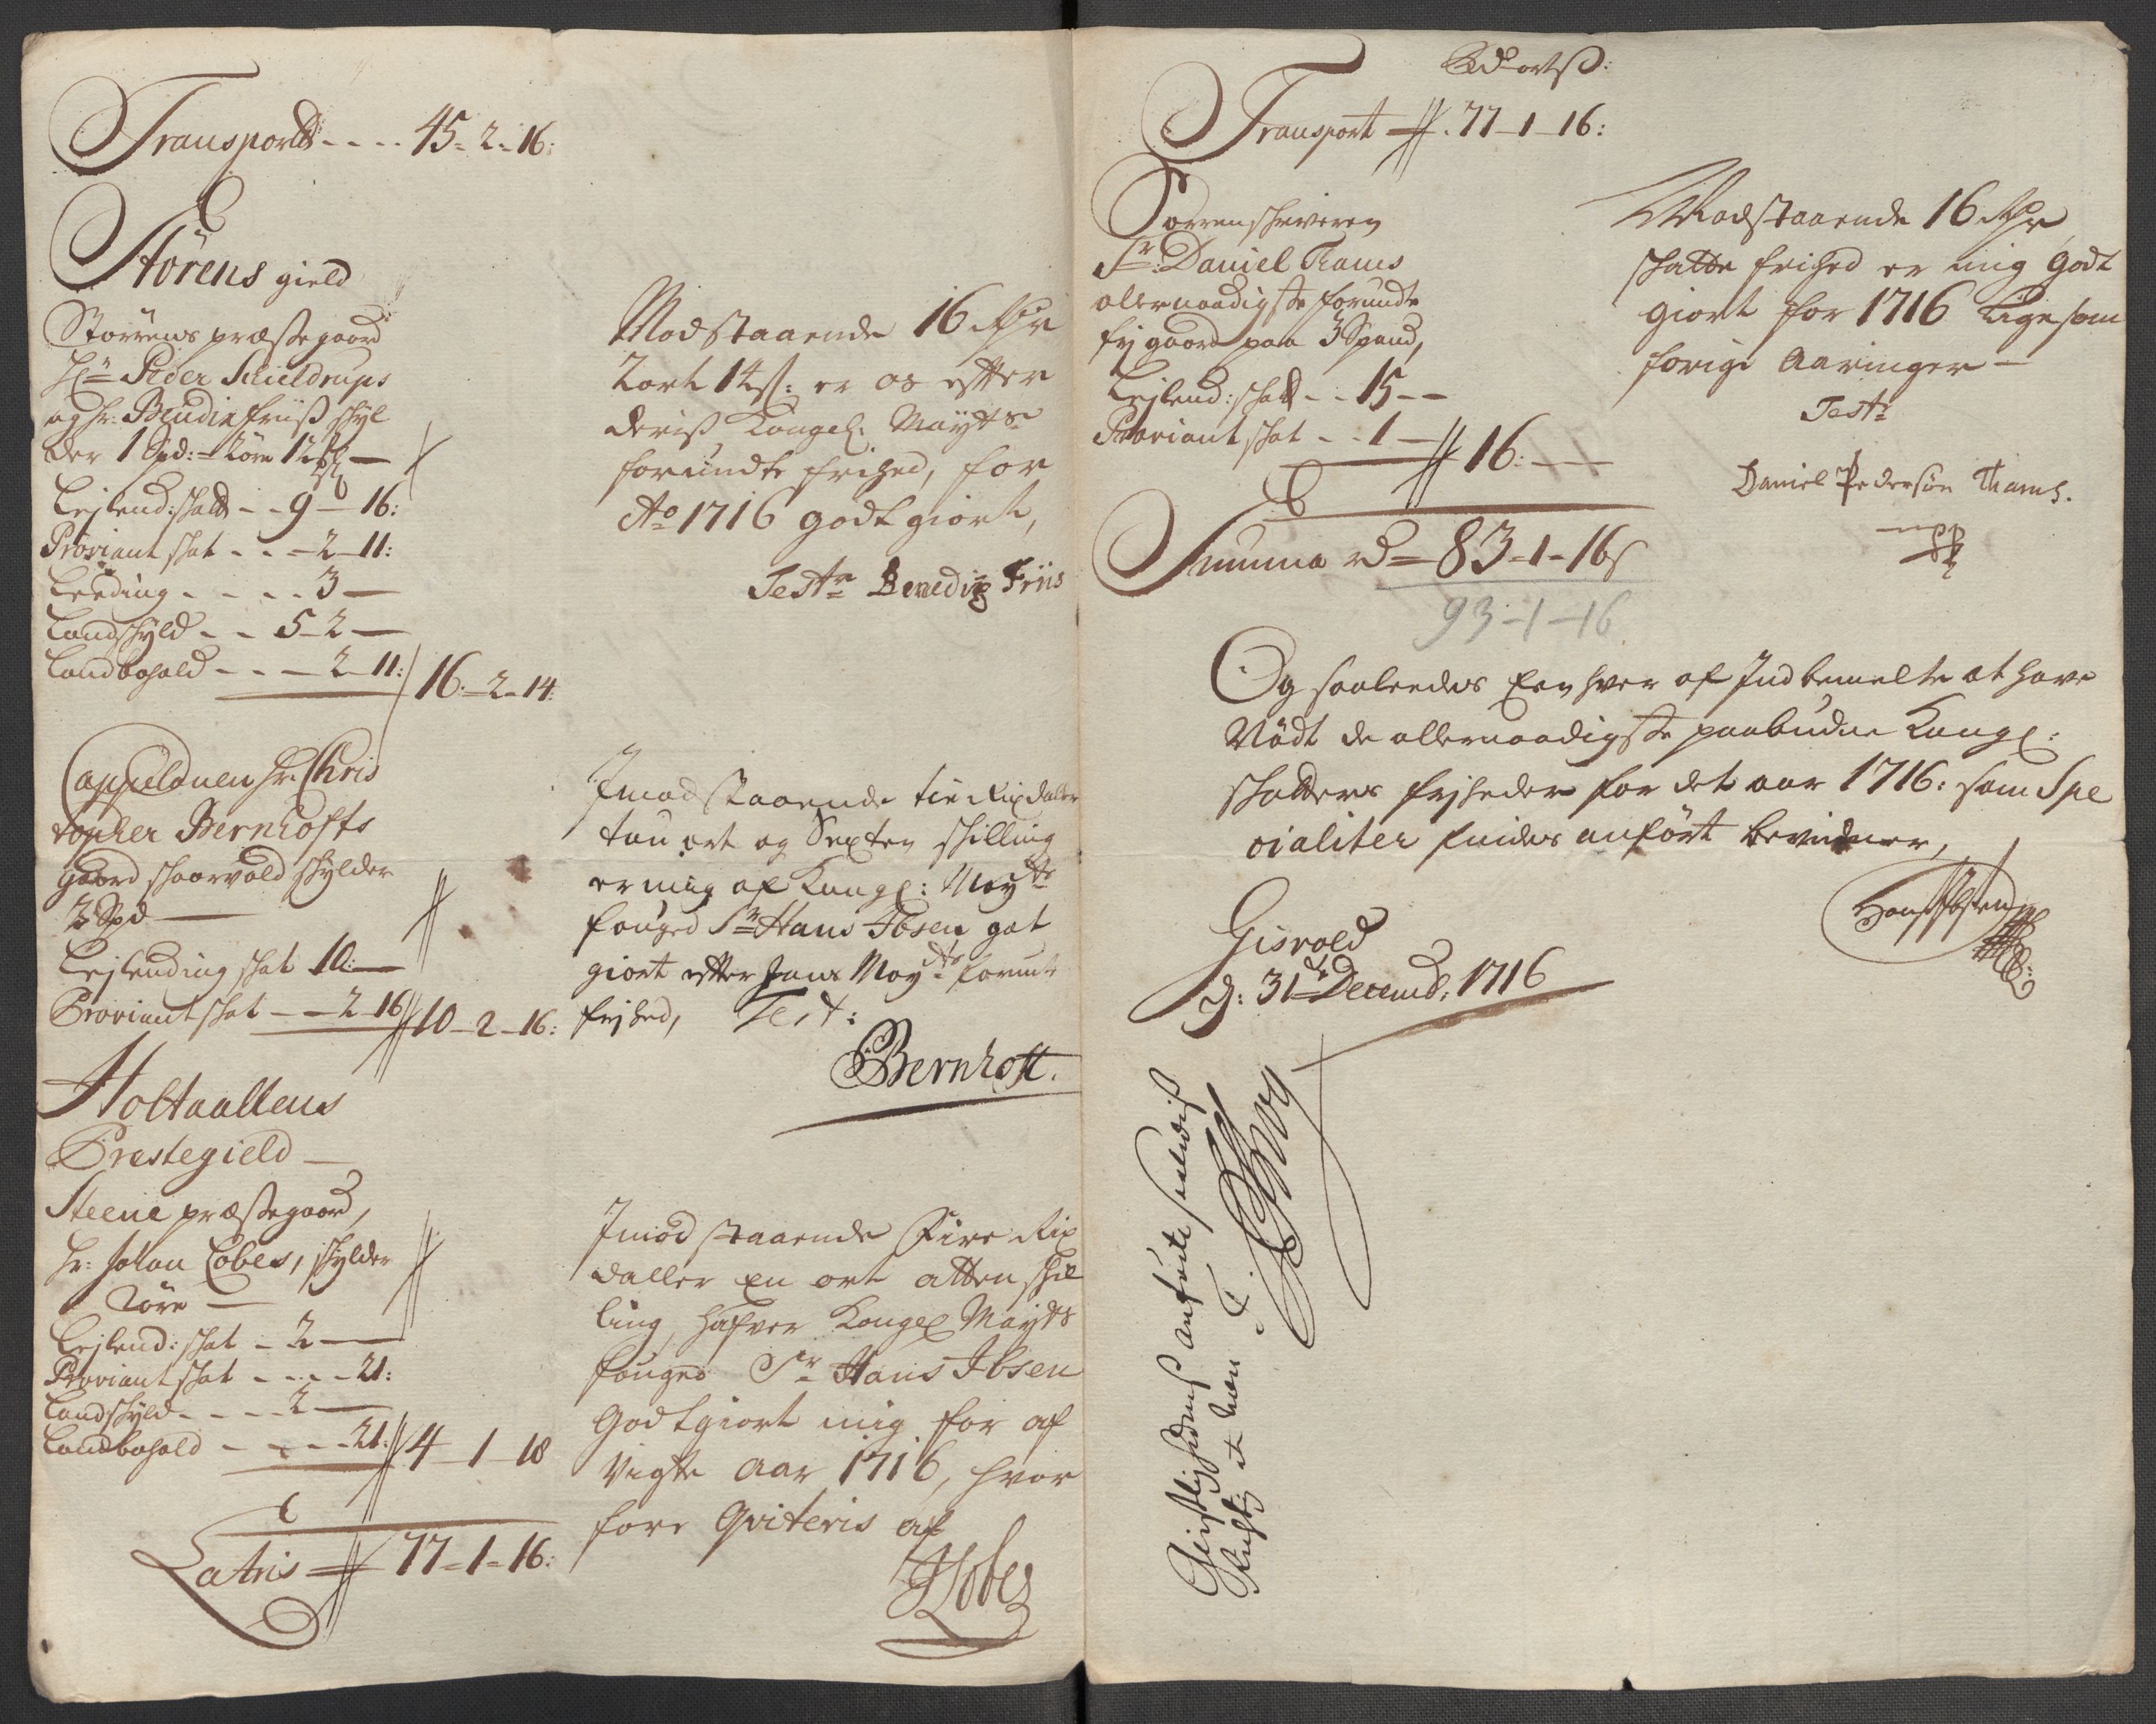 Transport - - - - 45 - 2 - 16:
Störens gield
Störens præstegaard
Hr: Peder Schieldrups
og hr: Bendix Friis skyl
der 1 Spd: - 2 öre 12 mkl —
Leylend: skatt - - 9 — 16:
Proviant skat - - - 2 - 11:
Leeding - - - - 3 —
Landskyld - - 5 - 2 —
Landbohold - - - 2 - 11: 16 - 2 - 14:
Cappelanen hr: Chris
topher Bernhofts
gaard skaarvold skylder
2 Spd —
Leylending skat 10: —
Proviant skat - - 2 - 16 10 - 2 - 16:
Holtaallens
Prestegield —
Steene præstegaard,
hr: Johan Cobes, skylder
öre —
Leylend: skat - 2 —
Proviant skat - - - - 21:
Landskyld - - - - 2 —
Landbohold - - - - 21: 4 - 1 - 18
Latris 77 - 1 - 16:
Modstaaende 16 Rdr
2 ort 14 s: er os efter
deris Kongel: Mayts
forundte frihed, for
Ao 1716 godtgiort,
Teste Benedix Friis
Imodstaaende tie Rixdaler
tou ort og Sexten skilling
er mig af Kongl: Mayts
fouged Sr Hans Ibsen got
giort efter hans Mayts forunte
frihed, Test:
CBernhoft.
Imod staaende Fire Rix
daller En ort atten skil
ling, hafver Kongel Mayts
fouged Sr Hans Ibsen
Godtgiort mig for af
vigte aar 1716, hvor
fore Qviteris af
JCobes
Rdr ort s:
Transport . 77 - 1 - 16:
Sorrenskriveren
Sr: Daniel Thams
allernaadigste forundte
fri gaard paa 3 Spand,
Leylend: skatt - - 15 - -
Proviant skat - - 1 — 16: - -
Summa rd = 83 - 1 - 16 s
93 - 1 - 16.
Modstaaende 16 Rdr
skatte frihed er mig godt
giort for 1716 Ligesom
forige Aaringer —
Teste
Daniel Pedersön Thams.
mpp
Og saaledes Een hver af Indbemelte at have
Nødt de allernaadigste paabudne Kongl:
skatters friheder for det aar 1716: som Spe
cialiter findes anført bevidner,
Gisvold
d: 31te Decemb: 1716
Hans Ibsen
Geistlighedens anførte saaledis
Rigtig at være T.